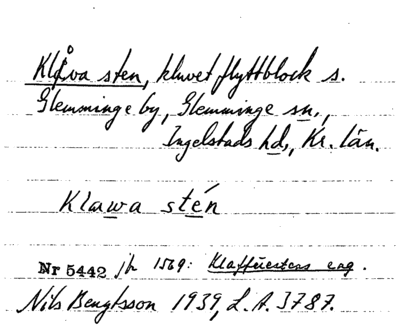 Klåva sten, kluvet flyttblock s.
Glemminge by, Glemminge sn.,
Ingelstads hd., Kr. län.
Klawa stén
Nr 5442 jfr 1569: Klaffuestens eng.
Nils Bengtsson 1939, L.A. 3787.